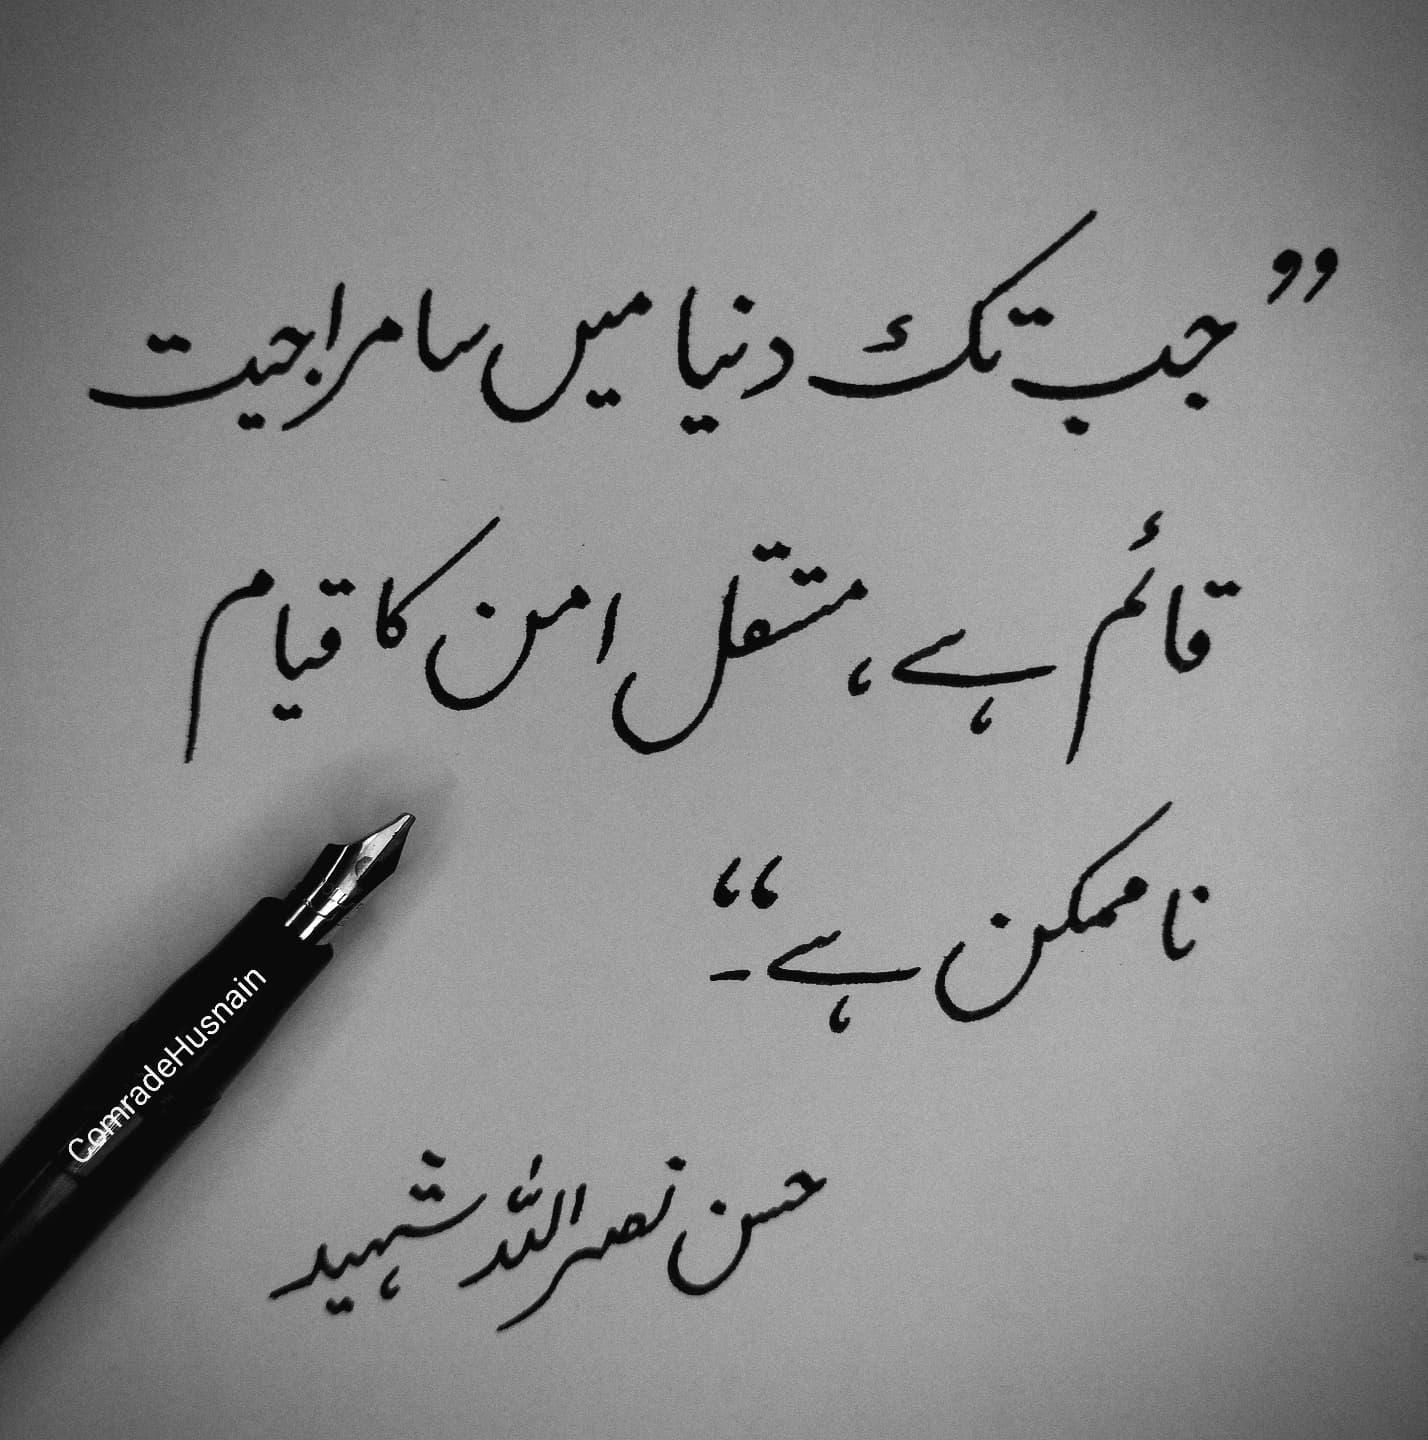 ”جب تک دنیا میں سامراجیت
قائم ہے، مستقل امن کا قیام
ناممکن ہے۔“
حسن نصر اللہ شہید
ComradeHusnain